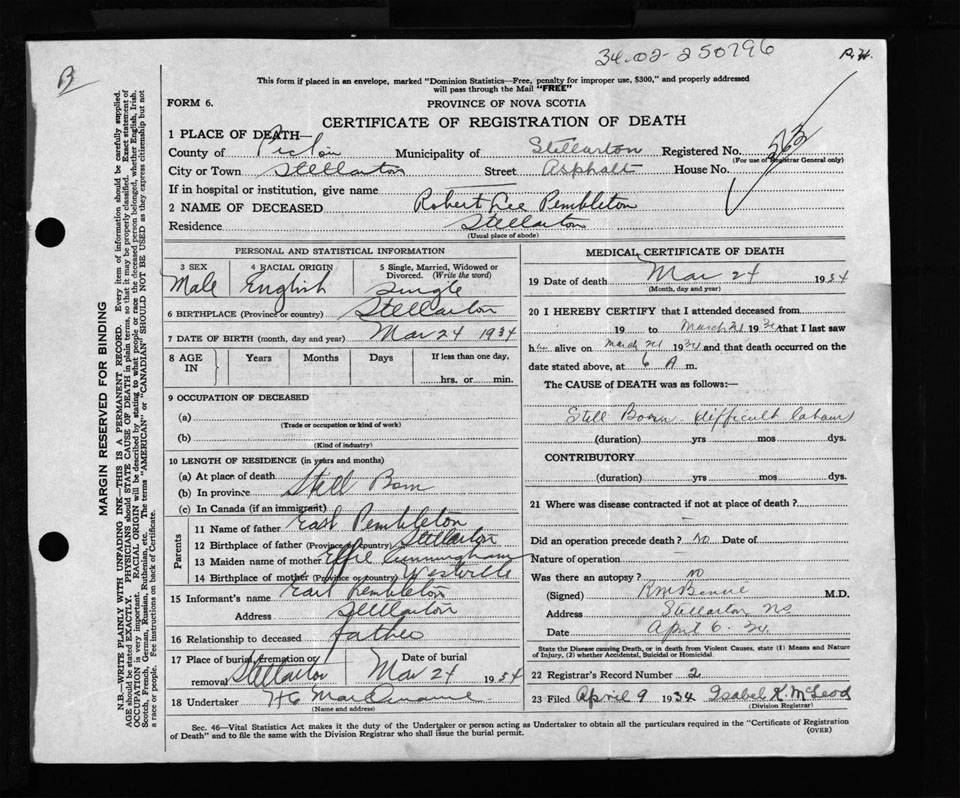 34-02-250796
R.H.
B
This form if placed in an envelope, marked "Dominion Statistics—Free, penalty for improper use, $300," and properly addressed
will pass through the Mail "FREE"
FORM 6.
PROVINCE OF NOVA SCOTIA
CERTIFICATE OF REGISTRATION OF DEATH
1 PLACE OF DEATH—
County of Pictou Municipality of Stellarton Registered No. 263
(For use of Registrar General only)
City or Town Stellarton Street Asphalt House No.
If in hospital or institution, give name
2 NAME OF DECEASED Robert Lee Pembleton
Residence Stellarton
(Usual place of abode)
PERSONAL AND STATISTICAL INFORMATION
3 SEX Male
4 RACIAL ORIGIN English
5 Single, Married, Widowed or
Divorced. (Write the word)
Single
6 BIRTHPLACE (Province or country) Stellarton
7 DATE OF BIRTH (month, day and year) Mar 24 1934
8 AGE IN Years Months Days If less than one day,
hrs. or min.
9 OCCUPATION OF DECEASED
(a)
(Trade or occupation or kind of work)
(b)
(Kind of industry)
10 LENGTH OF RESIDENCE (in years and months)
(a) At place of death
(b) In province Still Born
(c) In Canada (if an immigrant)
Parents
11 Name of father Earl Pembleton
12 Birthplace of father (Province or country) Stellarton
13 Maiden name of mother Effie Cunningham
14 Birthplace of mother (Province or country) Westville
15 Informant's name Earl Pembleton
Address Stellarton
16 Relationship to deceased father
17 Place of burial, cremation or
removal Stellarton
Date of burial
Mar 24 1934
18 Undertaker
(Name and address)
MEDICAL CERTIFICATE OF DEATH
19 Date of death Mar 24 1934
(Month, day and year)
20 I HEREBY CERTIFY that I attended deceased from
19 to March 24 1934 that I last saw
him alive on March 24 1934 and that death occurred on the
date stated above, at 6 A m.
The CAUSE of DEATH was as follows:—
Still Born difficult labour
(duration) yrs mos dys.
CONTRIBUTORY
(duration) yrs mos dys.
21 Where was disease contracted if not at place of death?
Did an operation precede death? No Date of
Nature of operation
Was there an autopsy? No
(Signed) M.D.
Address Stellarton NS
Date April 6. 34
State the Disease causing Death, or in death from Violent Causes, state (1) Means and Nature
of Injury, (2) whether Accidental, Suicidal or Homicidal.
22 Registrar's Record Number 2
23 Filed April 9 1934 Isabel K. McLeod
(Division Registrar)
Sec. 46—Vital Statistics Act makes it the duty of the Undertaker or person acting as Undertaker to obtain all the particulars required in the "Certificate of Registration
of Death" and to file the same with the Division Registrar who shall issue the burial permit.
(OVER)
MARGIN RESERVED FOR BINDING
N.B.—WRITE PLAINLY WITH UNFADING INK—THIS IS A PERMANENT RECORD. Every item of information should be carefully supplied.
AGE should be stated EXACTLY. PHYSICIANS should STATE CAUSE OF DEATH in plain terms, so that it may be properly classified. Exact statement of
OCCUPATION is very important. RACIAL ORIGIN will be described by stating to what people or race the deceased person belonged, whether English, Irish,
Scotch, French, German, Russian, Ruthenian, etc. The terms "AMERICAN" or "CANADIAN" SHOULD NOT BE USED as they express citizenship but not
a race or people. See instructions on back of Certificate.